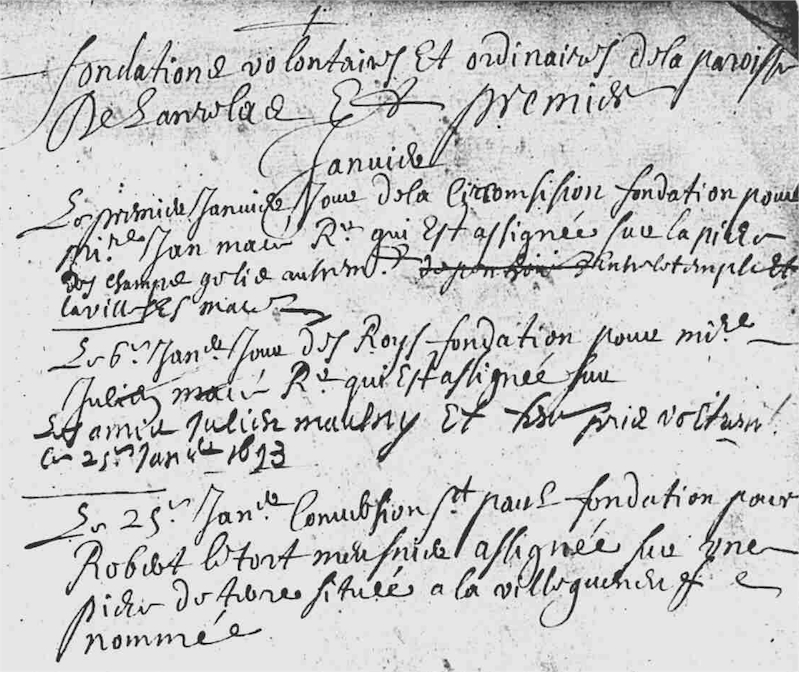 fondations volontaires Et ordinaires dela paroisse
De Lanrelas Et premier
Janvier
Le premier Janvier Jour dela Circomsision fondation pour
mire Jan macé Rr qui Est assignée sur la piece
des champs golie autrem.t Entre le temple Et
la ville Es macé
Le 6.e Janer Jour des Roys fondation pour mire
Julien macé Rr qui Est assignée sur
Julien maulny Et
ce 25.e Janvier 1693
Le 25.e Janer Conversion St paul fondation pour
Robert le tort meusnier assignée sur vne
piece de terre située a la villegueneuf
nommée